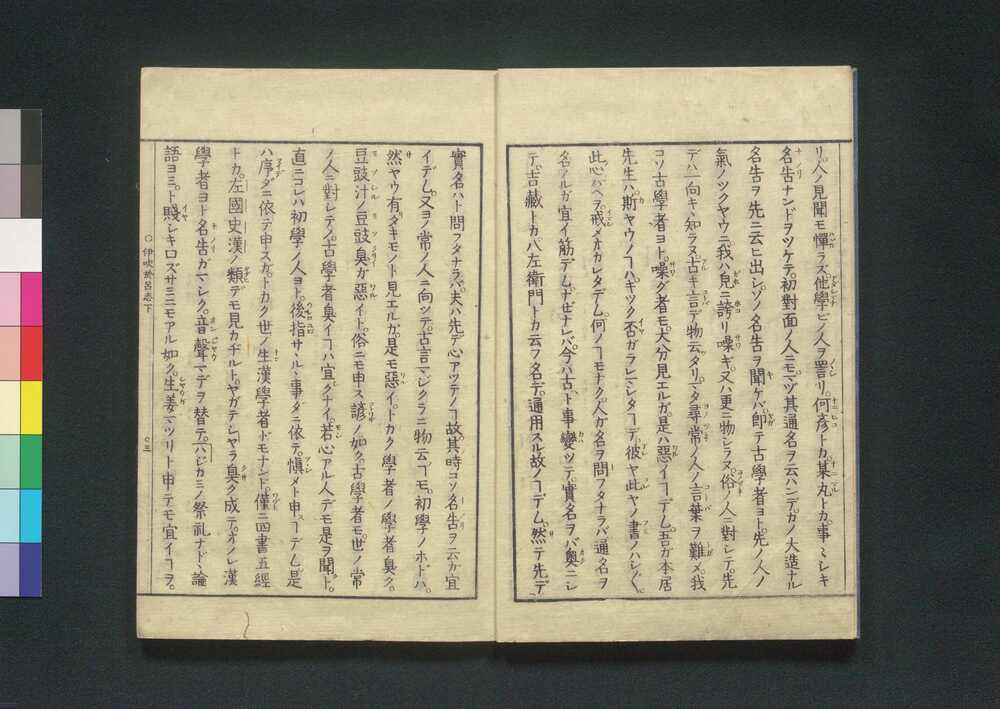 リ。人ノ見聞モ憚ラズ他學ビノ人ヲ詈リ。何彦トカ。某丸トカ。事〻シキ
名告ナンドヲツケテ。初對面ノ人ニモ。マヅ其通名ヲ云ハンデ。カノ大造ナル
名告ヲ先ニ云ヒ出シ。ソノ名告ヲ聞ケバ。即テ古學者ヨト。先ノ人ノ
氣ノツクヤウニ。我ハ㒵ニ誇リ噪ギ。又ハ更ニ物シラヌ俗ノ人ニ對シテ。先
デハ一向キヽ知ラヌ古キ言デ物云タリ。マタ尋常ノ人ノ言葉ヲ難メ。我
コソ古學者ヨト。噪グ者モ。大分見エルガ。是ハ惡イヿデム。吾ガ本居
先生ハ。斯ヤウノヿハ。キツク否ガラレマシタヿデ。彼ヤ此ヤノ書ノハシ〴〵。
此心バヘヲ。戒メオカレタデム。何ノヿモナク。人ガ名ヲ問フタナラバ通名ヲ
名アルガ宜イ筋デム。ナゼナレバ。今ハ古ヘト事變ツテ。實名ヲバ奥ニシ
テ。吉藏トカ。八左衛門トカ云フ名デ。通用スル故ノヿデム。然テ先デ
實名ハト問フタナラバ。夫ハ先デ心アツテノヿ故。其時コソ名告ヲ云ガ宜
イデム。又ヨノ常ノ人ニ向ツテ。古言マジクラニ物云ヿモ。初學ノホドハ。
然ヤウ有ダキモノト見エルガ。是モ惡イ。トカク學者ノ學者臭ク。
豆豉汁ノ豆豉臭ガ惡イト。俗ニモ申ス諺ノ如ク。古學者モ。世ノ常
ノ人ニ對シテノ。古學者臭イヿハ宜クナイ。若心アル人デモ是ヲ聞ト。
直ニコレハ初學ノ人ヨト。後指サヽルヽ事ダニ依テ。愼メト申ヿデム。是
ハ序ダニ依テ申スガ。トカク世ノ生漢學者ドモナンド。僅ニ四書五經
トカ。左國史漢ノ類デモ見カヂルト。ヤガテシヤラ臭ク成テ。オノレ漢
學者ヨト名告ガマシク。音聲マデヲ替テ。ハジカミノ祭礼ナドヽ論
語ヨミ。ト賤シキ口ズサミニモアル如ク。生姜マツリト申テモ宜イヿヲ。
〇伊吹於呂志下
〇三